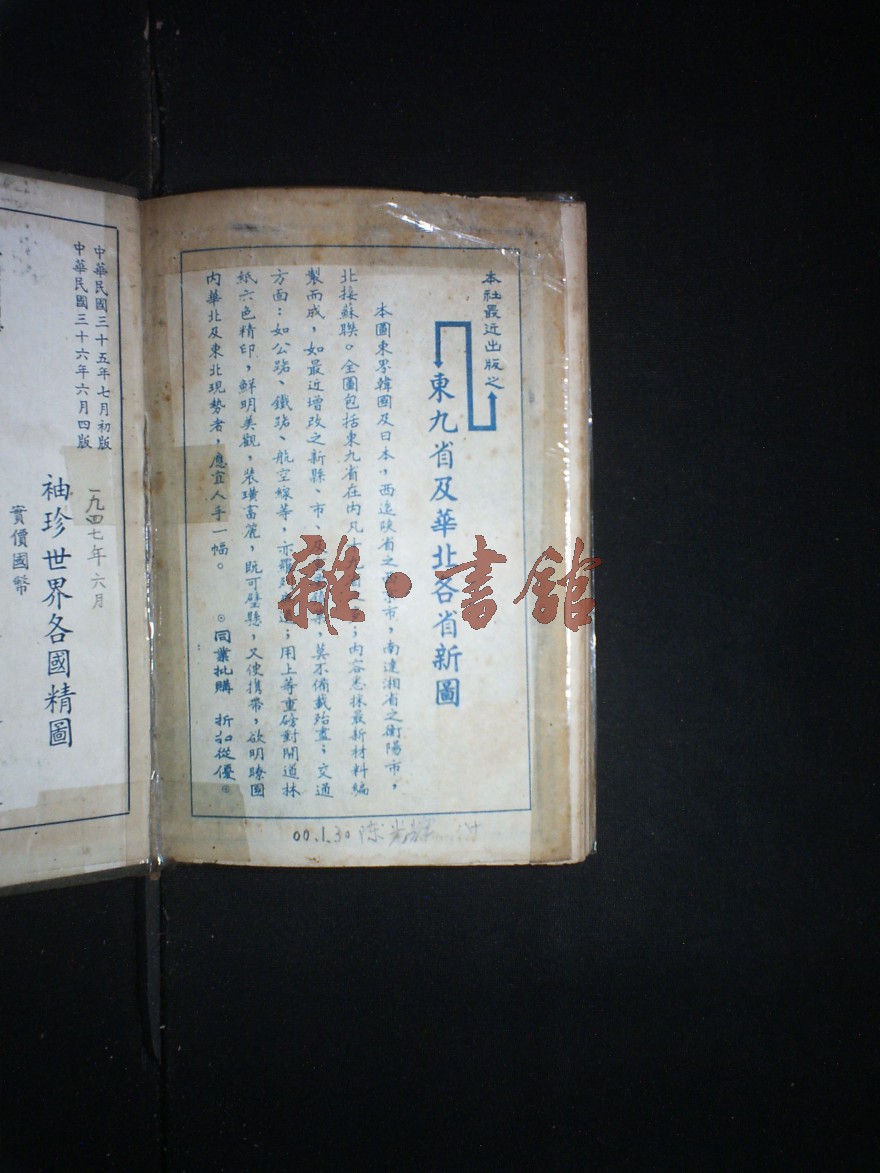 本社最近出版之
東九省及華北各省新圖
本圖東界韓國及日本，西遠陝省之　　市，南達湘省之衡陽市，
北接蘇聯。全圖包括東九省在內凡十　　　；內容悉採最新材料編
製而成，如最近增改之新縣、市、及　　　，莫不備載殆盡；交通
方面：如公路、鐵路、航空線等，亦羅　　；用上等重磅對開道林
紙六色精印，鮮明美觀，裝璜富麗，既可壁懸，又便携帶，欲明瞭國
內華北及東北現勢者，應宜人手一幅。
⊙同業批購　折扣從優⊙
00.1.30 陈光辉
雜·書館
中華民國三十五年七月初版
中華民國三十六年六月四版
一九四七年六月
袖珍世界各國精圖
實價國幣